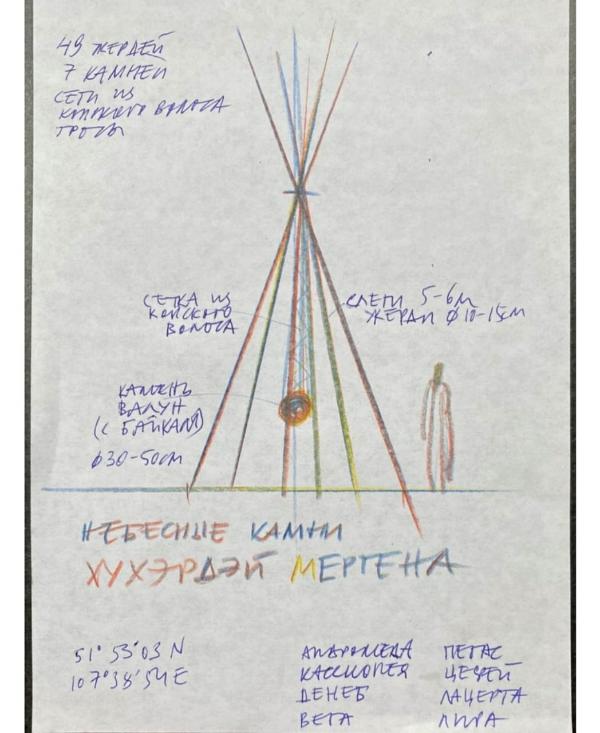 49 ЖЕРДЕЙ
7 КАМНЕЙ
СЕТИ ИЗ
КОНСКОГО ВОЛОСА
ТРОСЫ
СЕТКА ИЗ
КОНСКОГО
ВОЛОСА
СЛЕГИ 5-6М
ЖЕРДИ Ø10-15СМ
КАМЕНЬ
ВАЛУН
(С БАЙКАЛА)
Ø30-50СМ
НЕБЕСНЫЕ КАМНИ
ХУХЭРДЭЙ МЕРГЕНА
51° 53' 03 N
107° 38' 54 E
АНДРОМЕДА ПЕГАС
КАССИОПЕЯ ЦЕФЕЙ
ДЕНЕБ ЛАЦЕРТА
ВЕГА ЛИРА